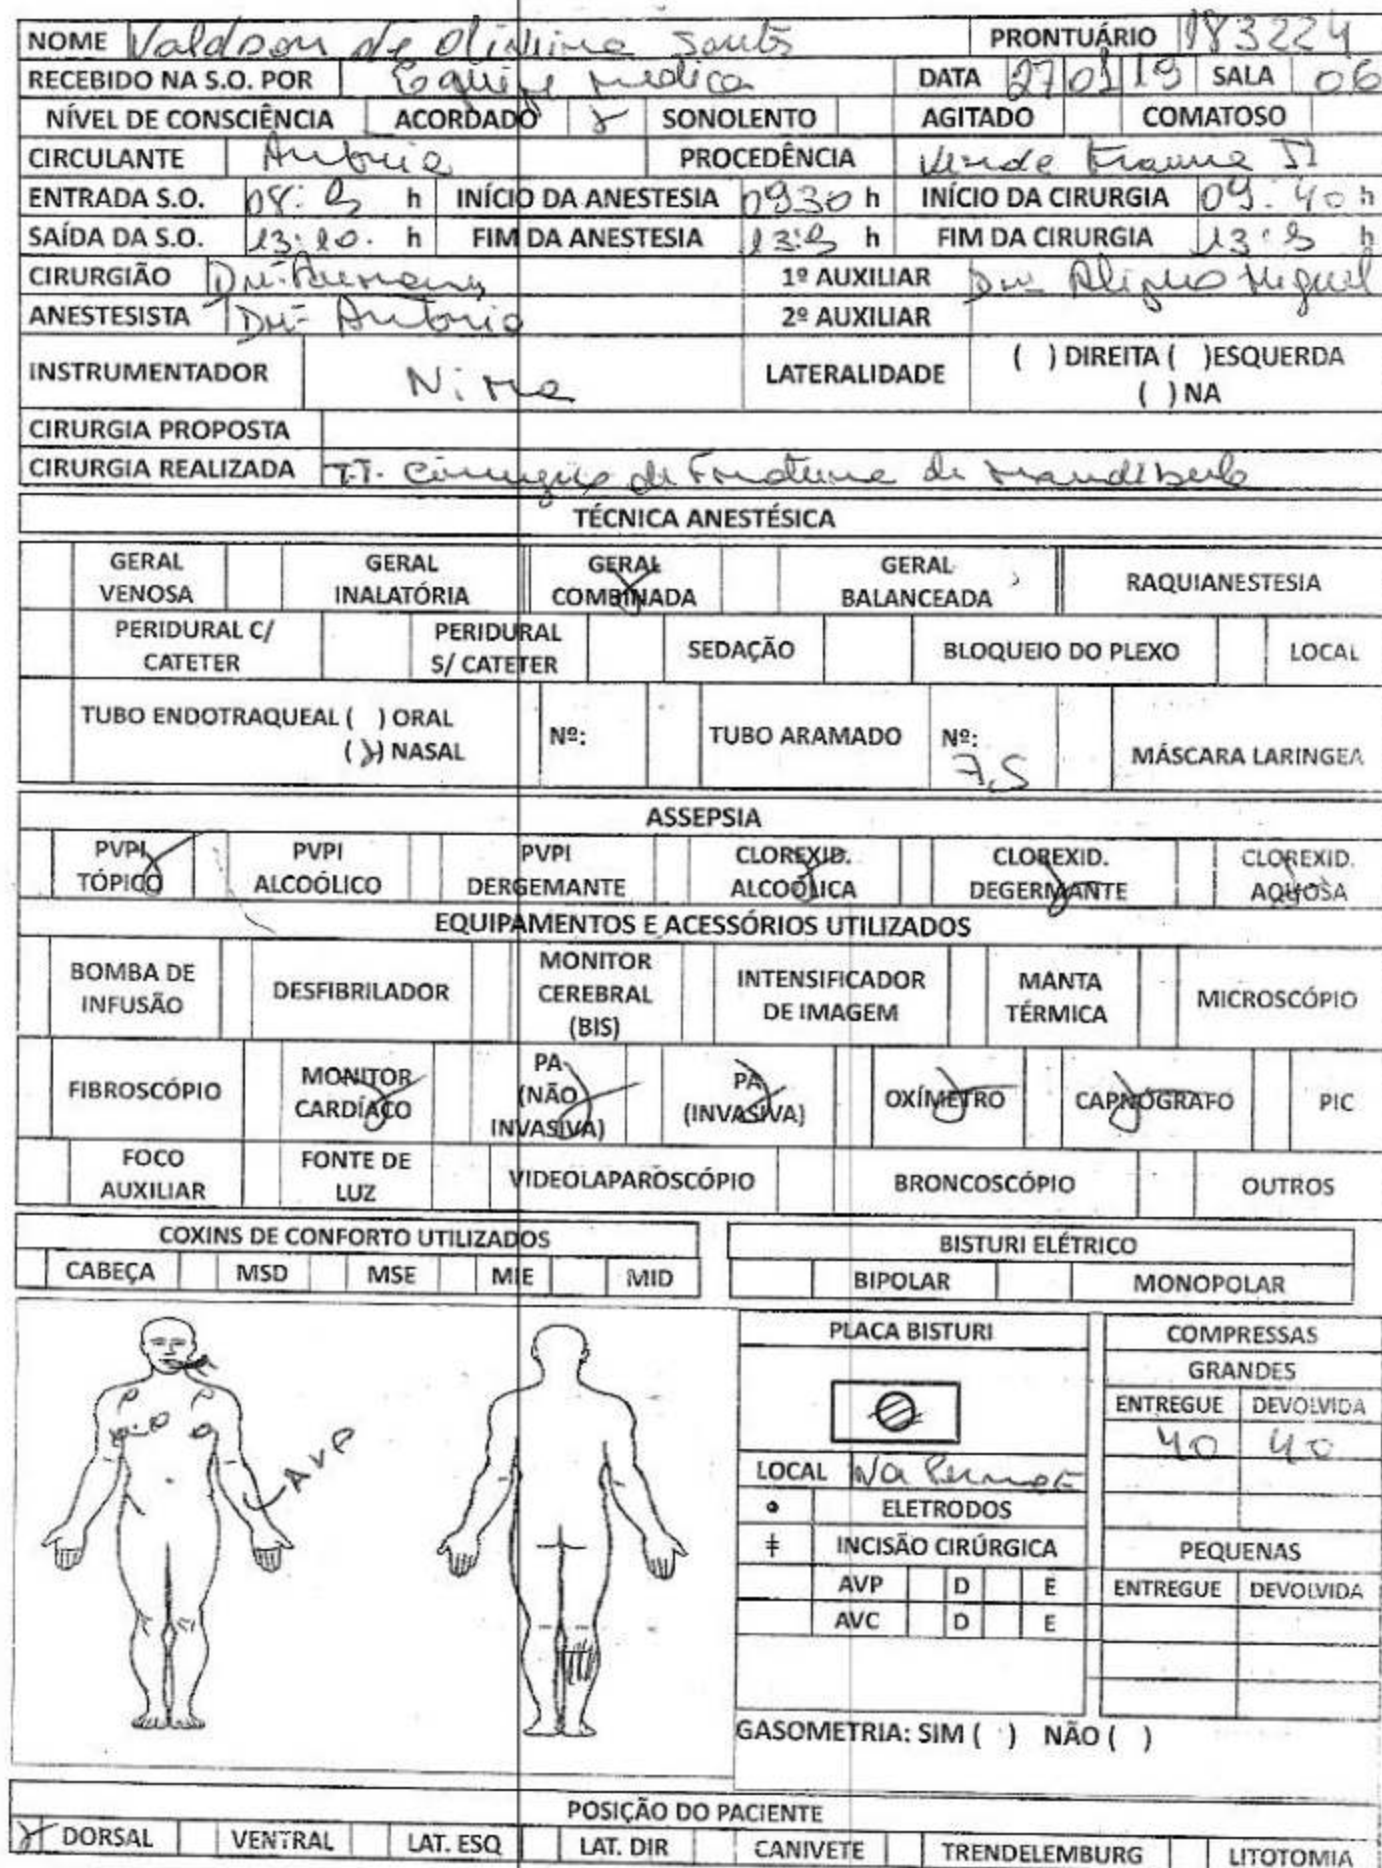 NOME Valdson de Oliveira Santos PRONTUÁRIO 183224
RECEBIDO NA S.O. POR Equipe medica DATA 27 01 19 SALA 06
NÍVEL DE CONSCIÊNCIA ACORDADO X SONOLENTO AGITADO COMATOSO
CIRCULANTE PROCEDÊNCIA Verde Trauma II
ENTRADA S.O. h INÍCIO DA ANESTESIA 0930 h INÍCIO DA CIRURGIA 09:40 h
SAÍDA DA S.O. 13:20. h FIM DA ANESTESIA h FIM DA CIRURGIA h
CIRURGIÃO 1º AUXILIAR Miguel
ANESTESISTA Antonio 2º AUXILIAR
INSTRUMENTADOR LATERALIDADE ( ) DIREITA ( )ESQUERDA
( ) NA
CIRURGIA PROPOSTA
CIRURGIA REALIZADA T.T. Cirurgico de Fratura de mandibula
TÉCNICA ANESTÉSICA
GERAL VENOSA GERAL INALATÓRIA GERAL COMBINADA X GERAL BALANCEADA RAQUIANESTESIA
PERIDURAL C/ CATETER PERIDURAL S/ CATETER SEDAÇÃO BLOQUEIO DO PLEXO LOCAL
TUBO ENDOTRAQUEAL ( ) ORAL
(X) NASAL Nº: TUBO ARAMADO Nº: 7,5 MÁSCARA LARINGEA
ASSEPSIA
PVPI TÓPICO X PVPI ALCOÓLICO PVPI DERGEMANTE CLOREXID. ALCOÓLICA X CLOREXID. DEGERMANTE X CLOREXID. AQUOSA X
EQUIPAMENTOS E ACESSÓRIOS UTILIZADOS
BOMBA DE INFUSÃO DESFIBRILADOR MONITOR CEREBRAL (BIS) INTENSIFICADOR DE IMAGEM MANTA TÉRMICA MICROSCÓPIO
FIBROSCÓPIO MONITOR CARDÍACO X PA (NÃO INVASIVA) X PA (INVASIVA) X OXÍMETRO X CAPNÓGRAFO X PIC
FOCO AUXILIAR FONTE DE LUZ VIDEOLAPAROSCÓPIO BRONCOSCÓPIO OUTROS
COXINS DE CONFORTO UTILIZADOS BISTURI ELÉTRICO
CABEÇA MSD MSE MIE MID BIPOLAR MONOPOLAR
PLACA BISTURI COMPRESSAS
GRANDES
ENTREGUE DEVOLVIDA
AVP
40 40
LOCAL Na
ELETRODOS
INCISÃO CIRÚRGICA PEQUENAS
AVP D E ENTREGUE DEVOLVIDA
AVC D E
GASOMETRIA: SIM ( ) NÃO ( )
POSIÇÃO DO PACIENTE
X DORSAL VENTRAL LAT. ESQ LAT. DIR CANIVETE TRENDELEMBURG LITOTOMIA